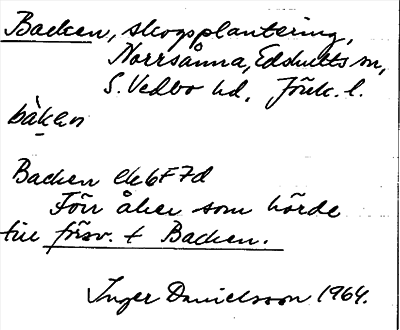 Backen, skogsplantering,
Norrsånna, Edshults sn,
S. Vedbo hd, Jönk. l.
bàkan
Backen ek6F7d
Förr åker som hörde
till försv. t Backen.
Inger Danielsson 1964.